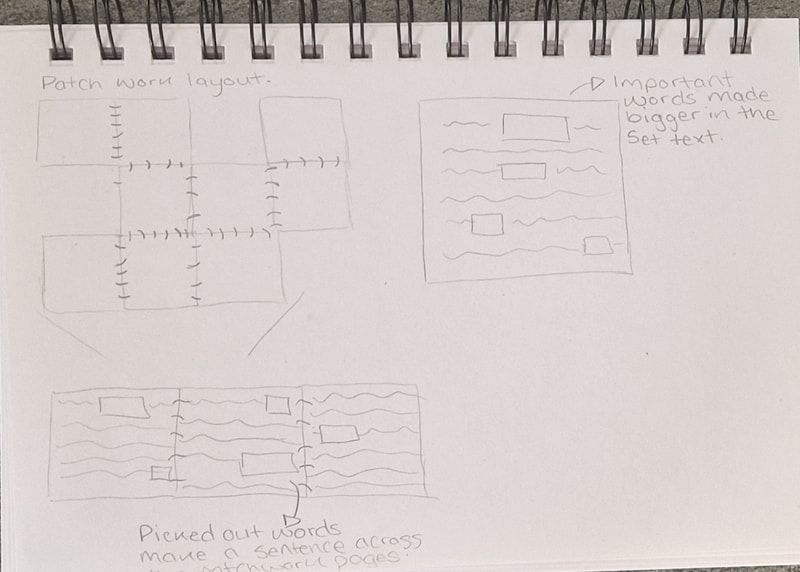 Patch work layout.
Important
words made
bigger in the
Set text.
Picked out words
make a sentence across
the patchwork pages.